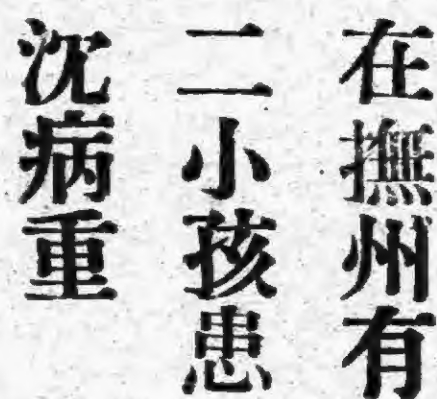 在撫州有
二小孩患
沉病重